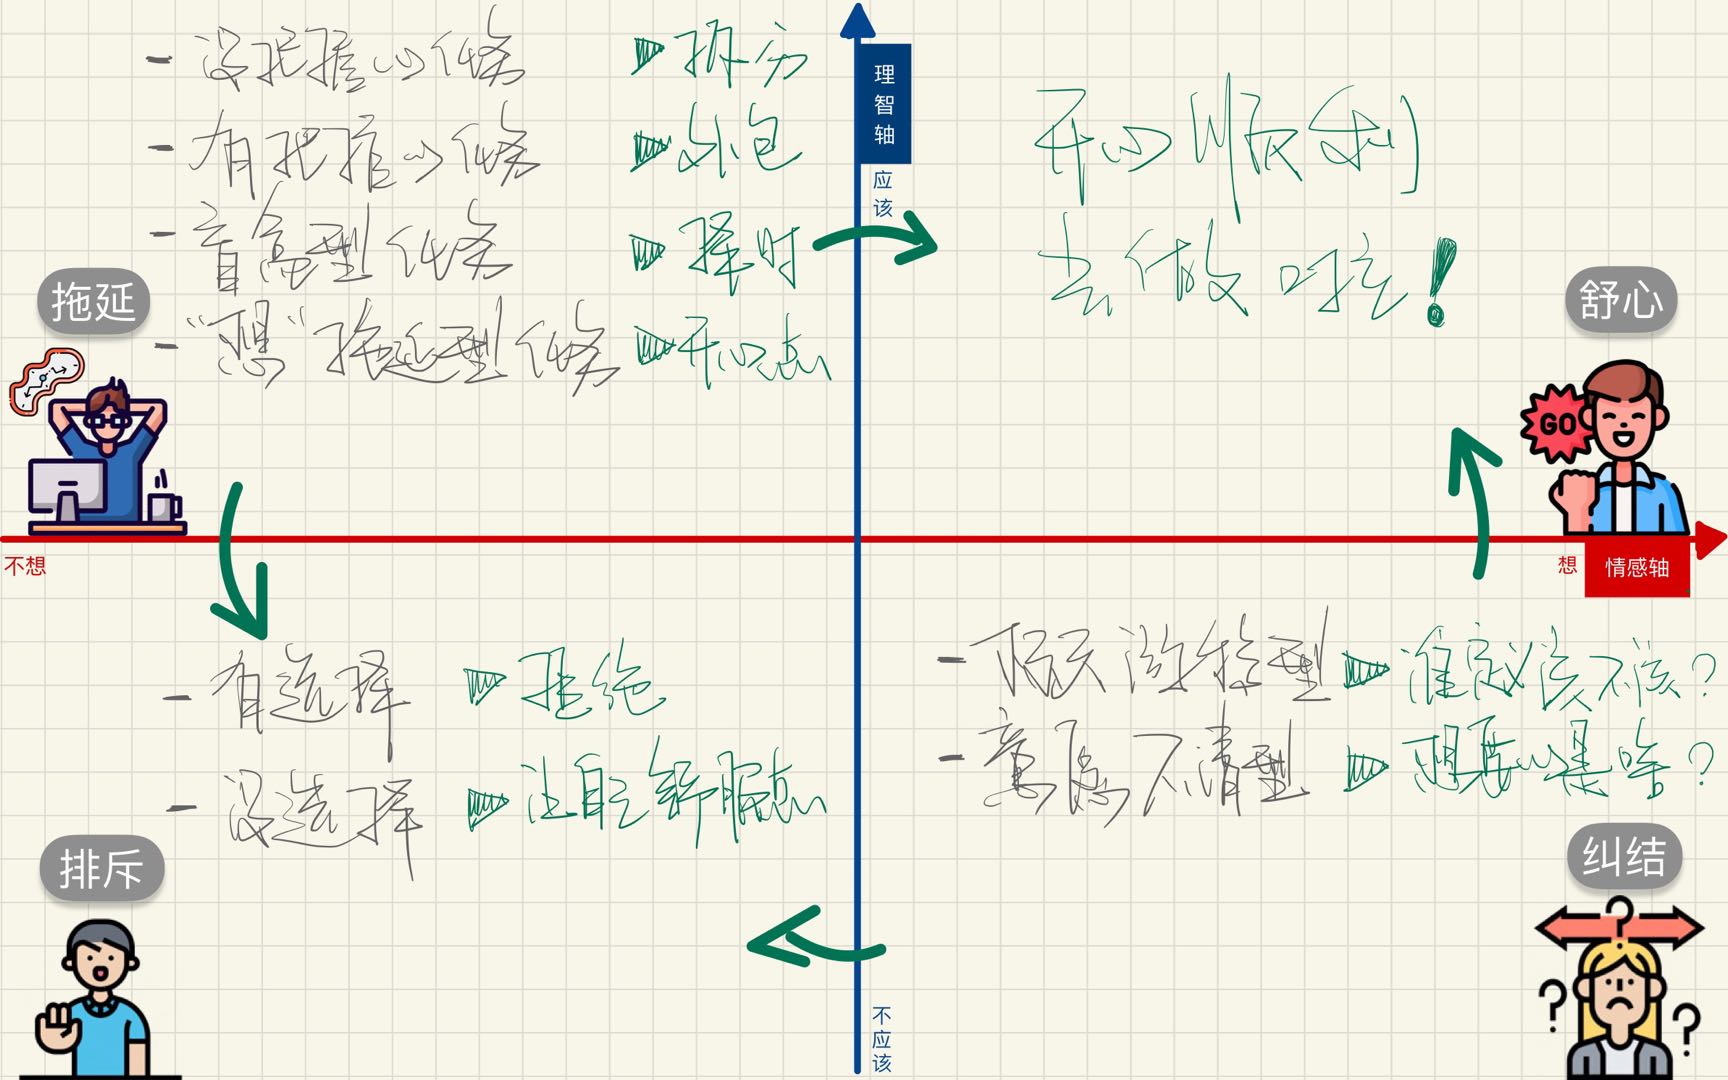 - 没把握的任务 拆分
- 有把握的任务 外包
- 盲高型任务 择时
- “想”拖延型任务 开心点
理智轴
应该
开心顺利
去做啦！
拖延
舒心
GO
不想
想
情感轴
- 有选择 拒绝
- 没选择 让自己舒服点
- 杨天游移型 谁定义该不该？
- 意愿不清型 想要的是啥？
排斥
纠结
不应该